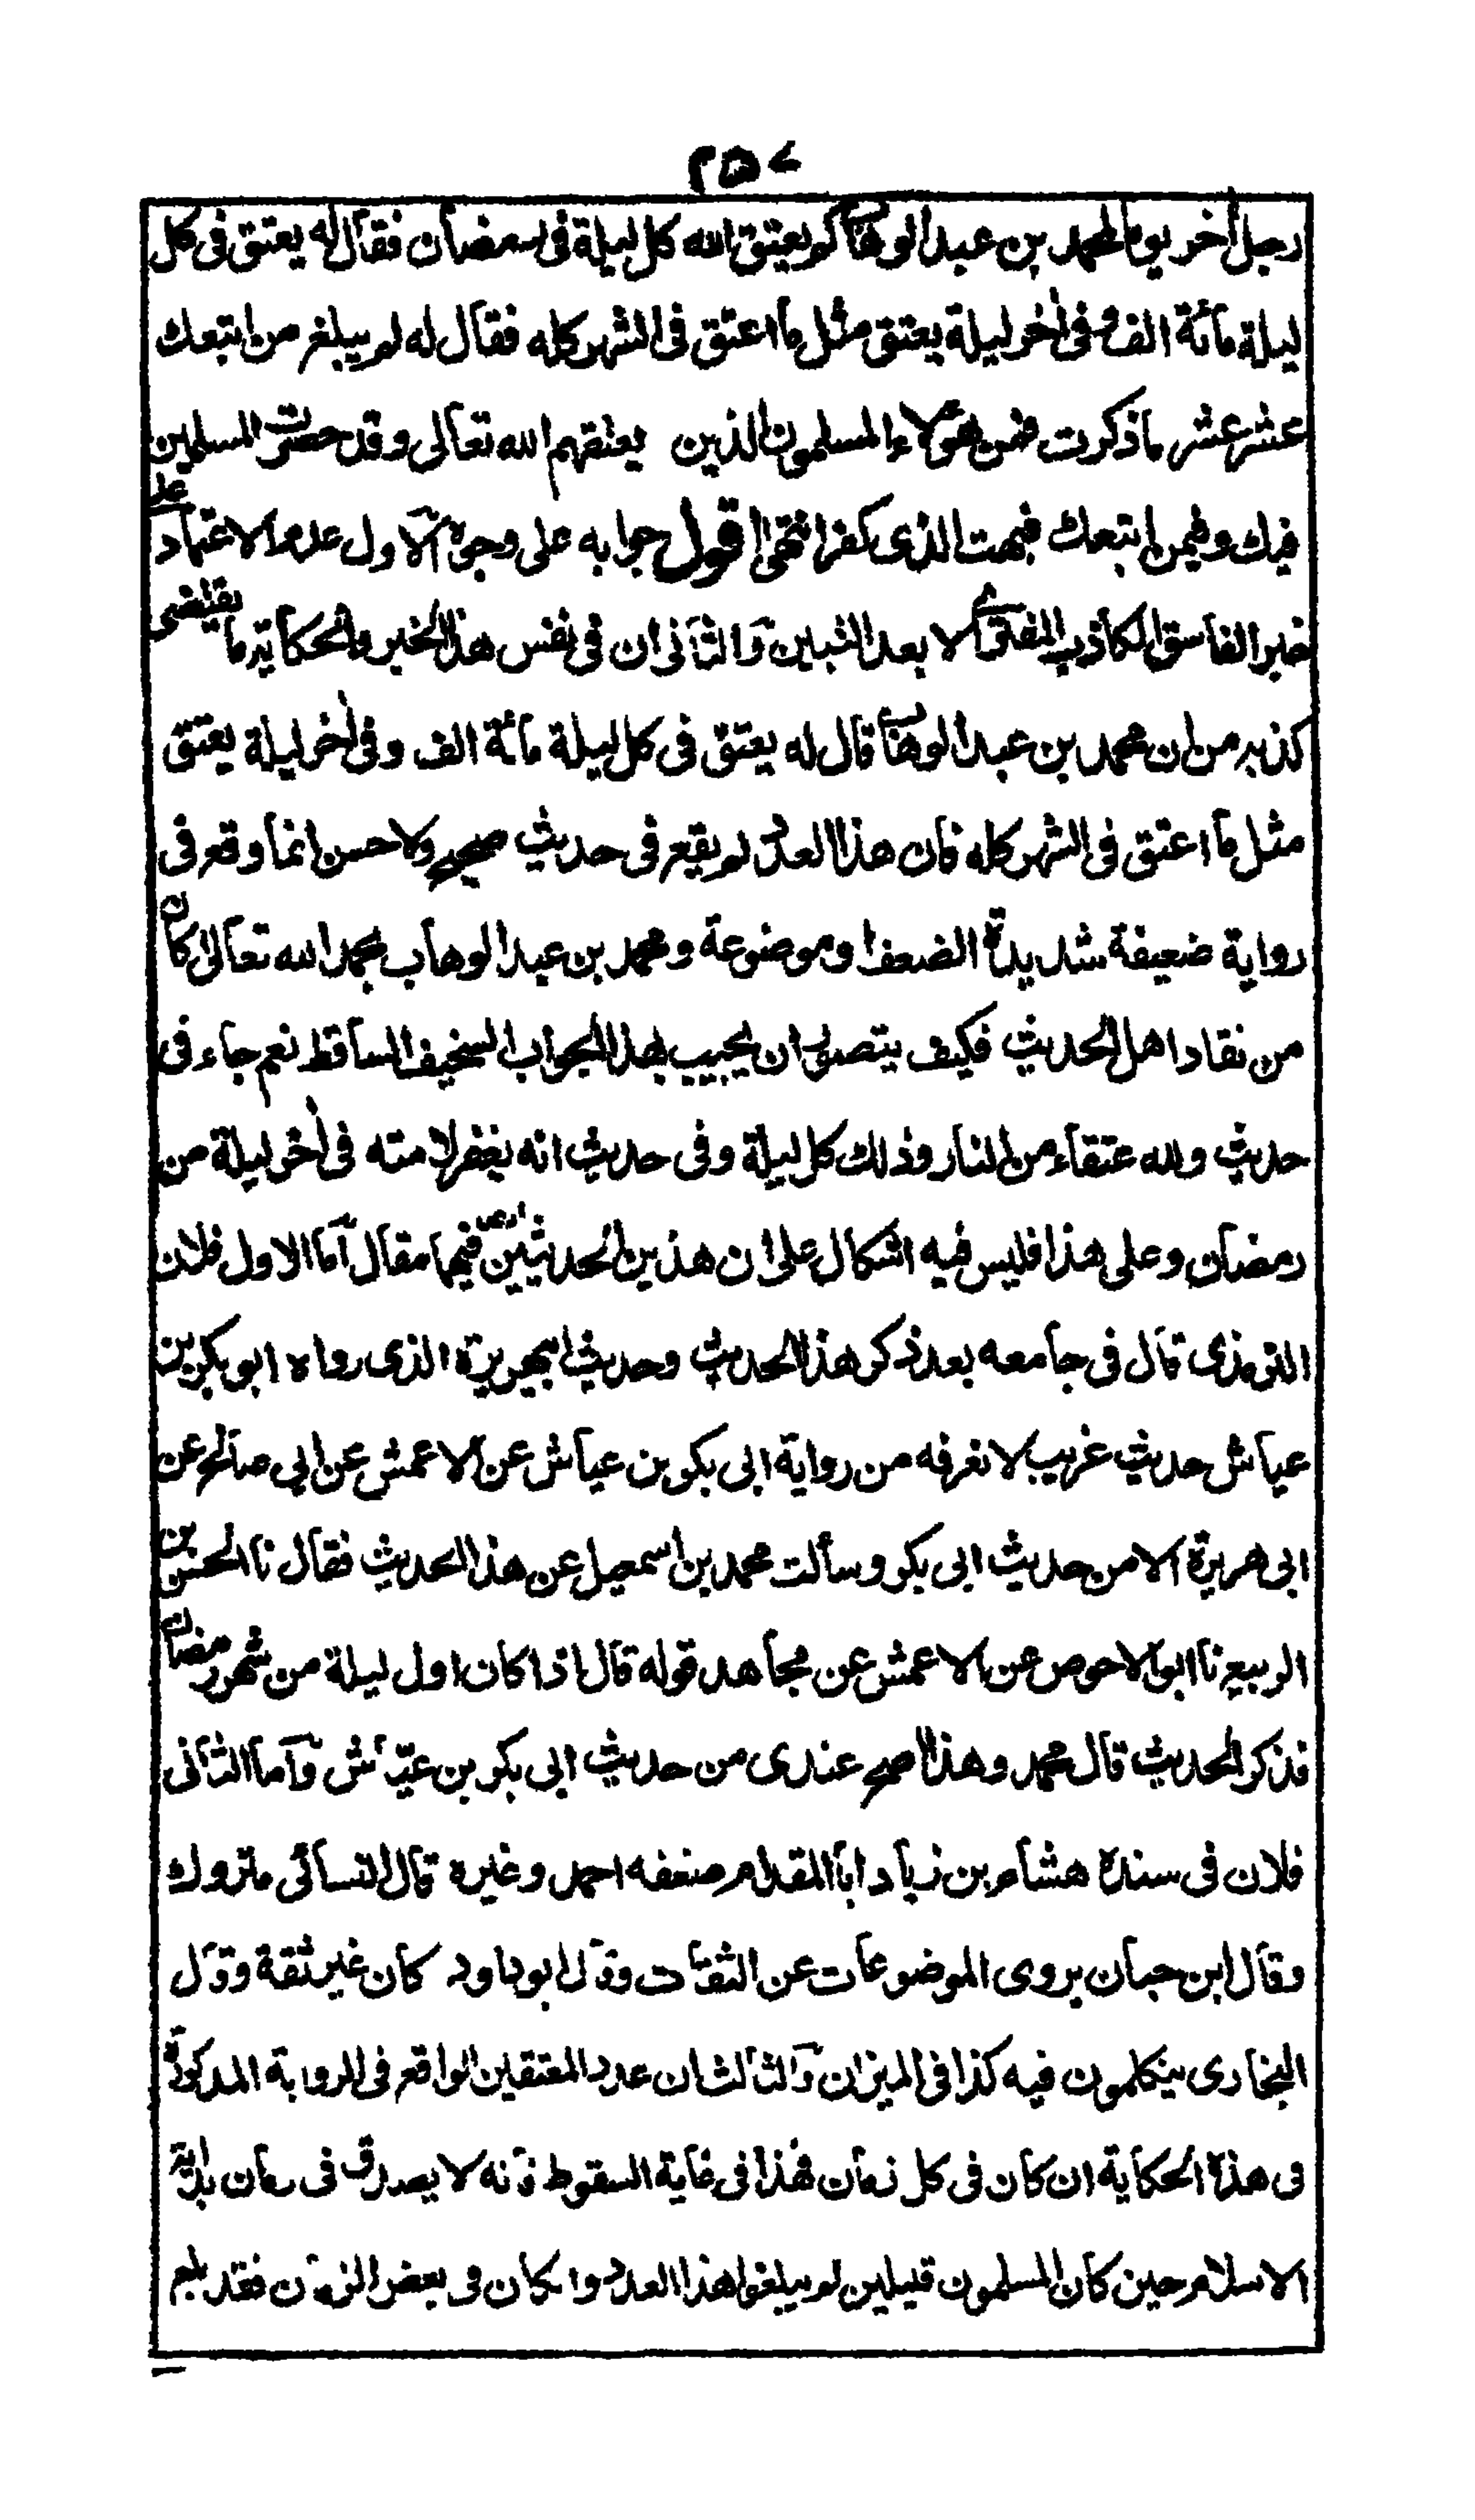 ٢٥٧
رجل أخر يوما لمحمد بن عبد الوهاب كم يعتق الله كل ليلة في رمضان فقال له يعتق في كل
ليلة مائة الف وفى أخر ليلة يعتق مثل ما اعتق في الشهر كله فقال له لم يبلغ من اتبعك
عشر عشر ما ذكرت فمن هؤلاء المسلمون الذين يعتقهم الله تعالى وقد حصرت المسلمين
فيك وفيمن اتبعك فبهت الذى كفر انتهى اقول جوابه على وجوه الآول عدم الاعتماد على
خبر الفاسق الكاذب المفترى الا بعد التبين وآلثانى ان في نفس هذا الخبر والحكاية ما يقتضى
كذبه من ان محمد بن عبد الوهاب قال له يعتق في كل ليلة مائة الف وفى أخر ليلة يعتق
مثل ما اعتق في الشهر كله فان هذا العدد لم يقع في حديث صحيح ولا حسن انما وقع في
رواية ضعيفة شديدة الضعف او موضوعة ومحمد بن عبد الوهاب بحمد الله تعالى كان
من نقاد اهل الحديث فكيف يتصور ان يجيب بهذا الجواب السخيف الساقط نعم جاء في
حديث ولله عتقاء من النار وذلك كل ليلة وفى حديث انه يغفر لامته في أخر ليلة من
رمضان وعلى هذا فليس فيه اشكال على ان هذين الحديثين فيهما مقال آما الاول فلان
الترمذى قال في جامعه بعد ذكر هذا الحديث وحديث ابى هريرة الذى رواه ابو بكر بن
عياش حديث غريب لا نعرفه من رواية ابى بكر بن عياش عن الاعمش عن ابى صالح عن
ابى هريرة الا من حديث ابى بكر وسألت محمد بن اسمعيل عن هذا الحديث فقال نا الحسن بن
الربيع نا ابو الاحوص عن الاعمش عن مجاهد قوله قال اذا كان اول ليلة من شهر رمضان
فذكر الحديث قال محمد وهذا اصح عندى من حديث ابى بكر بن عياش وآما الثانى
فلان في سنده هشام بن زياد ابا المقدام ضعفه احمد وغيره قال النسائى متروك
وقال ابن حبان يروى الموضوعات عن الثقات وقال ابو داود كان غير ثقة وقال
البخارى يتكلمون فيه كذا في الميزان وآلثالث ان عدد المعتقين الواقع في الرواية المذكورة
في هذه الحكاية ان كان في كل زمان فهذا في غاية السقوط فانه لا يصدق في زمان بداية
الاسلام حين كان المسلمون قليلين لم يبلغوا هذا العدد وان كان في بعض الزمان فقد بلغ